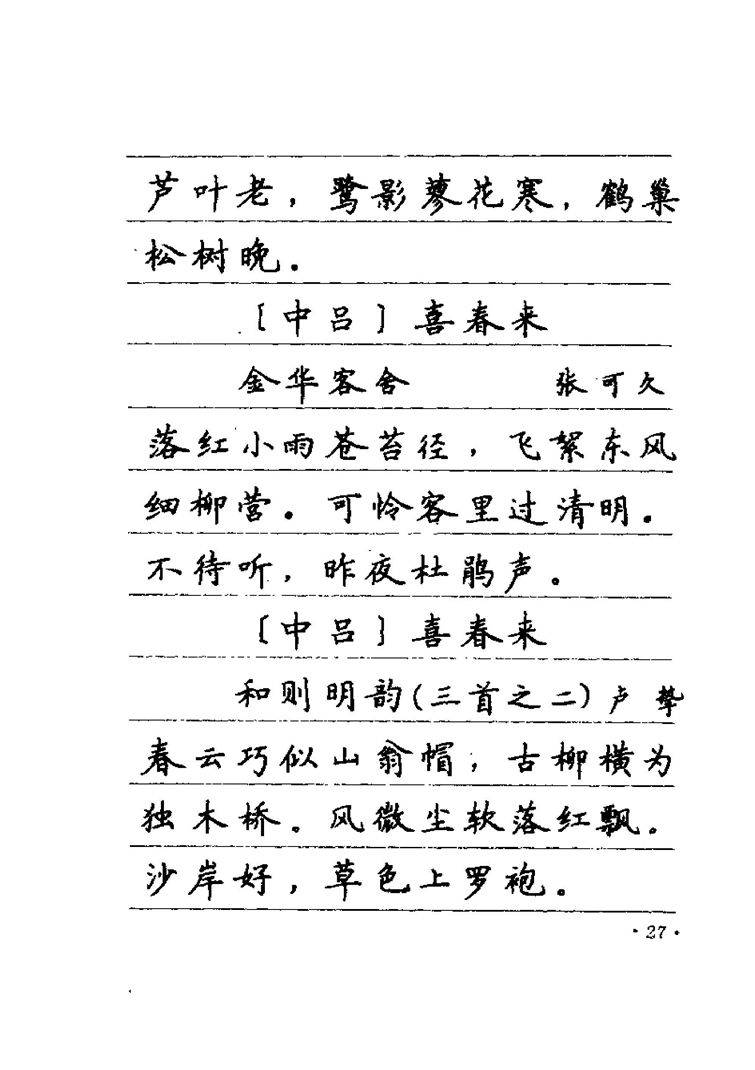 芦叶老，鹭影蓼花寒，鹤巢
松树晚。
〔中吕〕喜春来
金华客舍 张可久
落红小雨苍苔径，飞絮东风
细柳营。可怜客里过清明。
不待听，昨夜杜鹃声。
〔中吕〕喜春来
和则明韵(三首之二) 卢挚
春云巧似山翁帽，古柳横为
独木桥。风微尘软落红飘。
沙岸好，草色上罗袍。
·27·